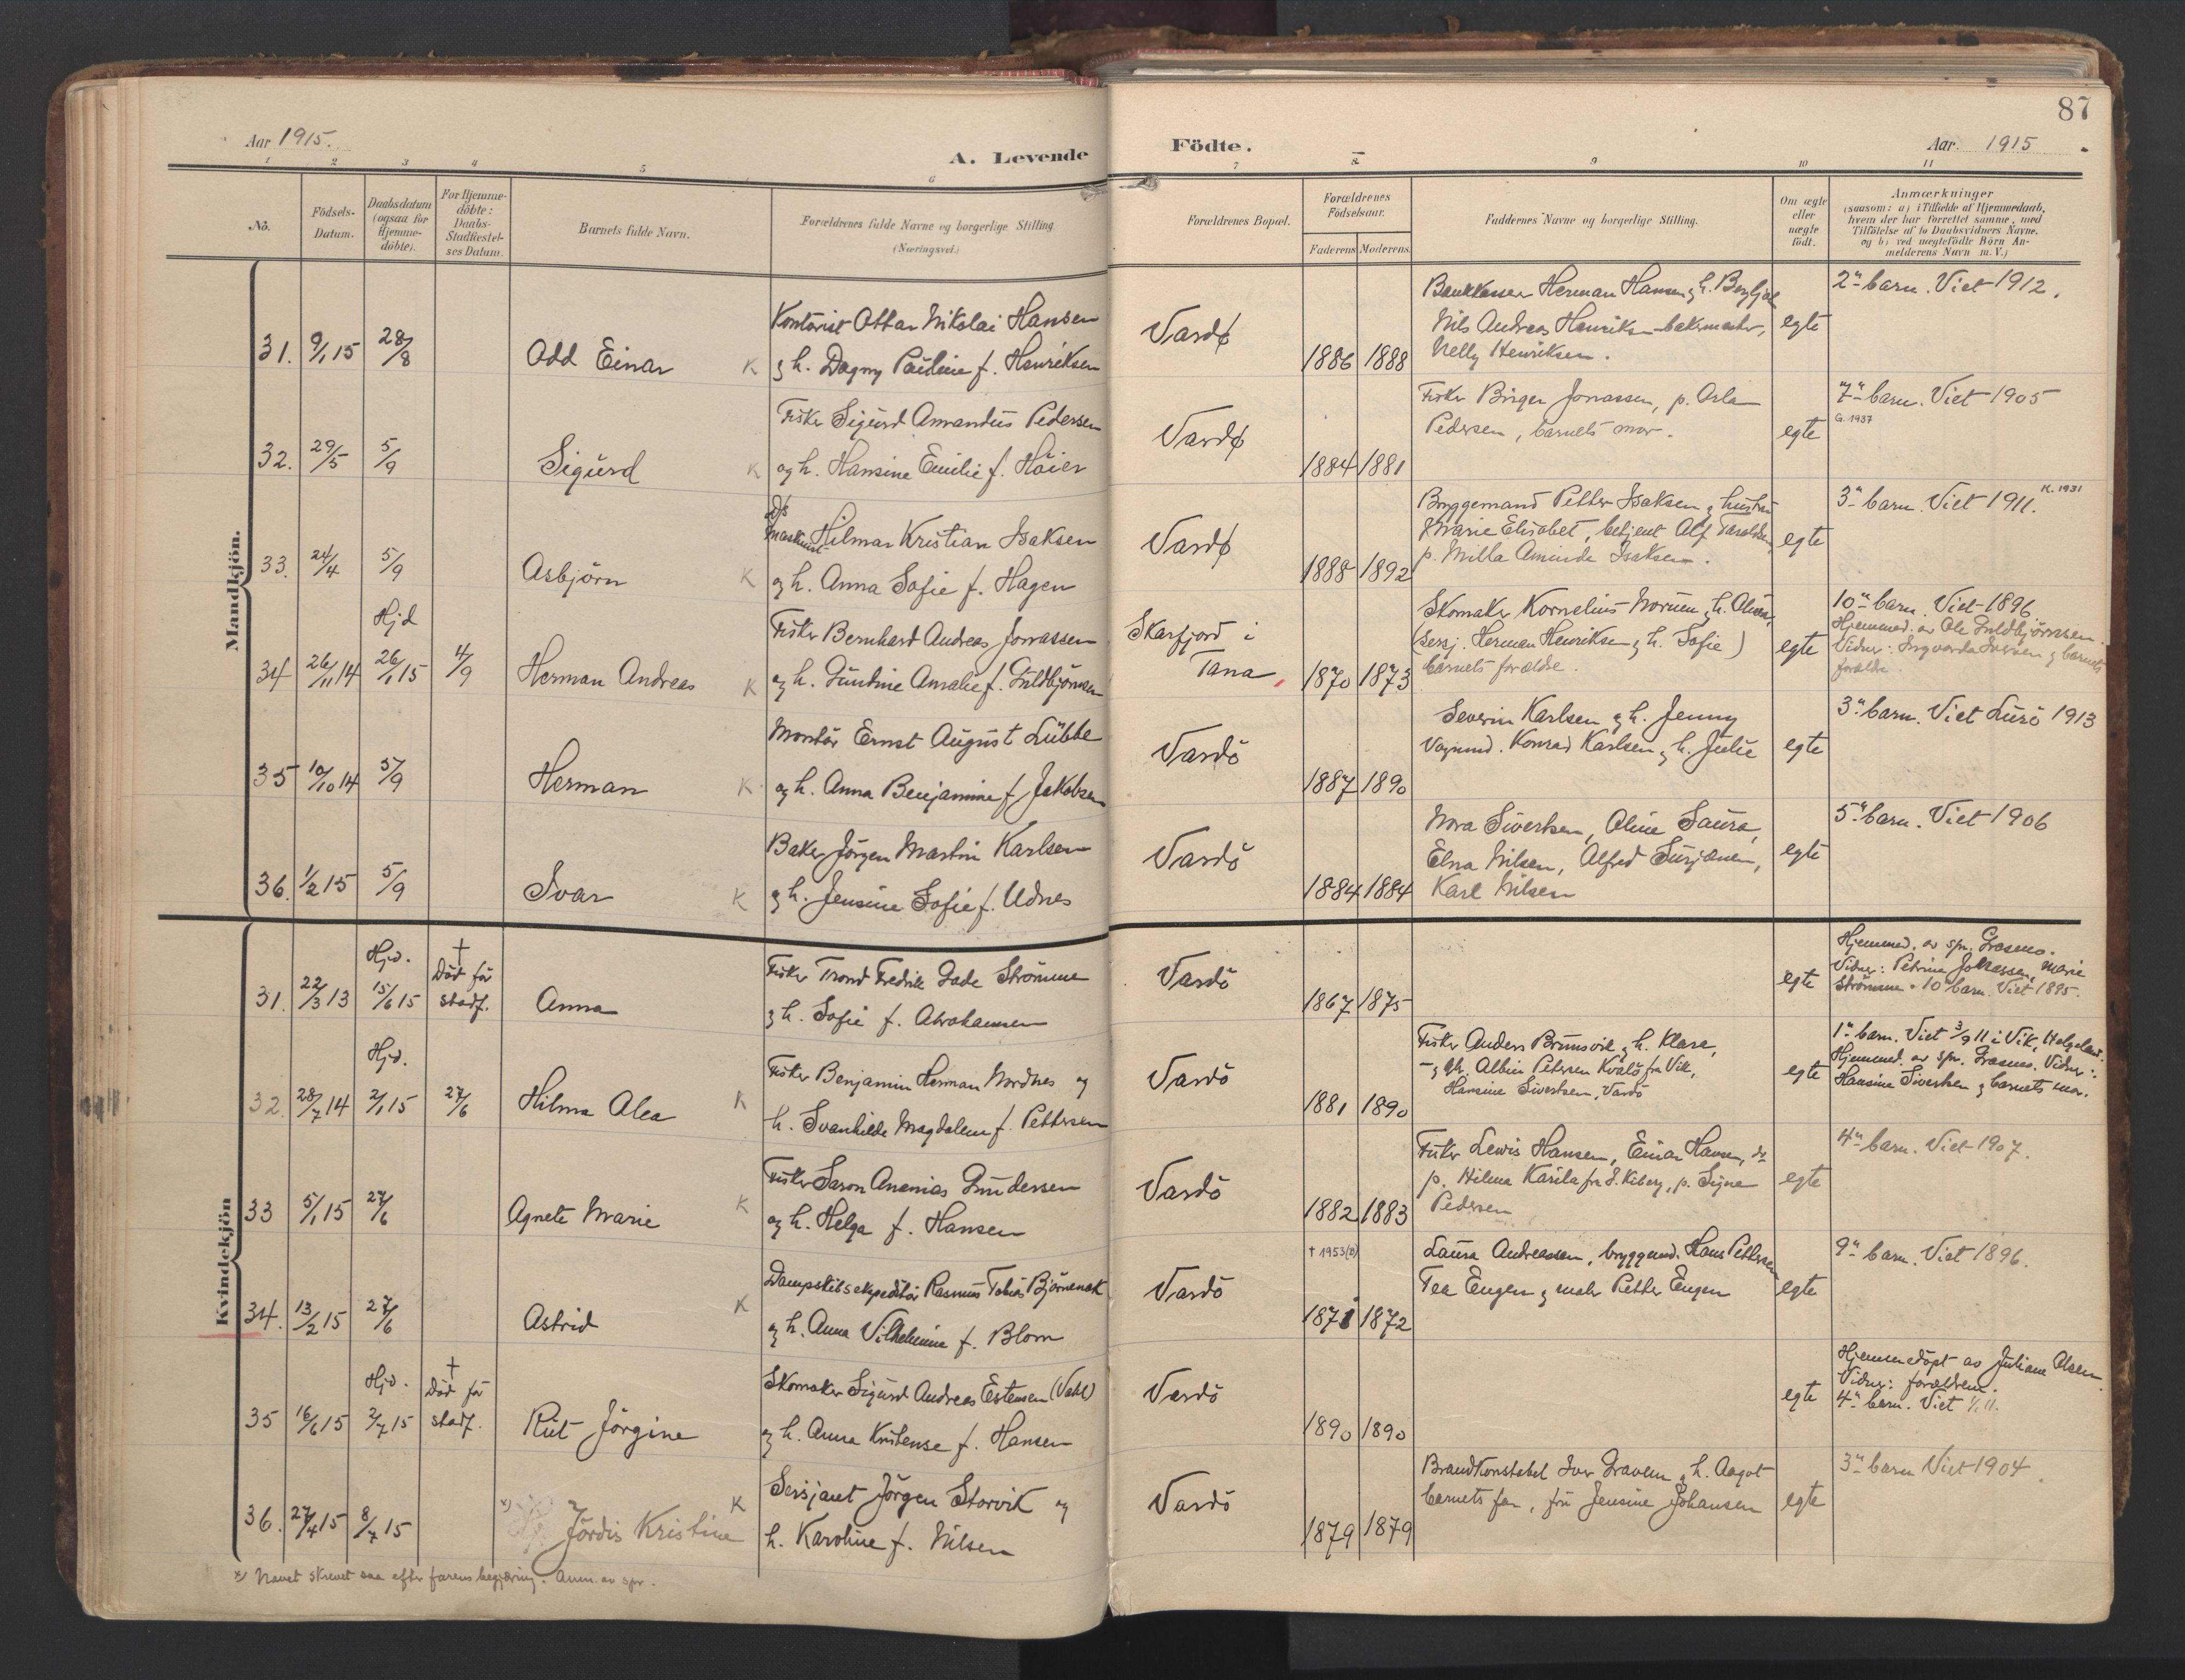 87
Aar 1915.
A. Levende
Födte.
Aar 1915
1 2 3 4 5 6 7 8 9 10 11
No.
Födsels-
Datum.
Daabsdatum
(ogsaa for
Hjemme-
döbte).
For Hjemme-
döbte:
Daabs-
Stadfæstel-
ses Datum.
Barnets fulde Navn.
Forældrenes fulde Navne og borgerlige Stilling
(Næringsvei.)
Forældrenes Bopæl.
Forældrenes
Födselsaar.
Faderens Moderens
Faddernes Navne og borgerlige Stilling.
Om ægte
eller
uægte
födt.
Anmærkninger
(saasom: a) i Tilfælde af Hjemmedaab,
hvem der har forrettet samme, med
Tilföielse af to Daabsvidners Navne.
og b) ved uægtefödte Börn An-
melderens Navn m. V.)
Mandkjön.
31. 9/1 15 28/8 Odd Einar K
Kontorist Ottar Nikolai Hansen
og h. Dagny Pauline f. Henriksen
Vardø 1886 1888
Bankkasser Herman Hansen og h. Bergljot
Nils Andreas Henriksen bakermester,
Nelly Henriksen.
egte
2't barn. Viet 1912.
32. 29/5 5/9 Sigurd K
Fisker Sigurd Amandus Pedersen
og h. Hansine Emilie f. Höier
Vardø 1884 1881
Fisker Birger Jonassen, p. Asla
Pedersen, barnets mor.
egte
7't barn. Viet 1905
G. 1937
33. 24/4 5/9 Asbjörn K
D/s
Maskinist Hilmar Kristian Isaksen
og h. Anna Sofie f. Hagen
Vardø 1888 1892
Bryggemand Petter Isaksen og hustru
Marie Elisabet, betjent Alf
p. Milla Aminda Isaksen.
egte
3't barn. Viet 1911. K. 1931
34 26/11 14 Hjd 26/1 15 4/9 Herman Andreas K
Fisker Bernhard Andreas Jonassen
og h. Gundine Amalie f. Guldbjörnsen
Skarfjord i
Tana, 1870 1873
Skomaker Kornelius h. Olivia,
(sersj. Herman Henriksen og h. Sofie)
barnets forældre.
egte
10't barn. Viet 1896
Hjemmed. av Ole Guldbjörnsen.
Vidner: Ingvarda Iversen og barnets
forældre.
35 10/10 14 5/9 Herman K
Montör Ernst August Lübbe
og h. Anna Benjamine f. Jakobsen
Vardö 1887 1890
Severin Karlsen og h. Jenny
Vognmd. Konrad Karlsen og h. Julie
egte
3't barn. Viet Lurö 1913
36. 1/2 15 5/9 Ivar K
Baker Jörgen Martin Karlsen
og h. Jensine Sofie f. Udnes
Vardö 1884 1884
Nora Sivertsen, Oline Laura,
Elna Nilsen, Alfred
Karl Nilsen
egte
5't barn. Viet 1906
Kvindekjön
31. 22/3 13 Hjd. 15/6 15 † Död för stadf. Anna
Fisker Trond Fredrik Gade Strömme
og h. Sofie f. Abrahamsen
Vardö 1867 1875
egte
Hjemmed. av spr. Grasmo.
Vidner: Petrine Johnassen, Marie
Strömme. 10' barn. Viet 1895.
32. 28/7 14 Hjd. 2/1 15 27/6 Hilma Alea K
Fisker Benjamin Herman Nordnes og
h. Svanhilde Magdalene f. Pettersen
Vardö 1881 1890
Fisker Anders Brunsvik og h. Klara,
– og h. Albin Petersen Kvalö fra Vik,
Hansine Sivertsen, Vardö
egte
1't barn. Viet 3/9 11 i Vik, Helgeland.
Hjemmed. av spr. Grasmo. Vidner:
Hansine Sivertsen og barnets mor.
33 5/1 15 27/6 Agnete Marie K
Fisker Saron Ananias Gundersen
og h. Helga f. Hansen
Vardö 1882 1883
Fisker Lewis Hansen, Einar Hansen, do
p. Hilma Karila fra S. Kiberg, p. Signe
Pedersen
egte
4't barn. Viet 1907.
34. 13/2 15 27/6 Astrid K
Dampskibsekspeditör Rasmus Tobias Björnebæk
og h. Anna Vilhelmine f. Blom
Vardö † 1953 1871 1872
Laura Andreassen, bryggemd. Hans Pettersen
Tea Eugen og maler Petter Eugen
egte
9't barn. Viet 1896.
35 16/6 15 Hjd. 2/7 15 † Död för stadf. Rut Jörgine
Skomaker Sigurd Andreas Estensen (Vahl)
og h. Anna Kristense f. Hansen
Vardö 1890 1890
egte
Hjemmedöpt av Juliane Olsen.
Vidner: forældrene.
4't barn. Viet 1/1 11.
36. 27/4 15 8/7 15 *) Jördis Kristine K
Sersjant Jörgen Storvik og
h. Karoline f. Nilsen
Vardö 1879 1879
Brandkonstabel Iver Graven og h. Aagot
barnets far, fru Jensine Johansen
egte
3't barn Viet 1904.
*) Navnet skrevet saa efter farens begjæring. Anm. av spr.